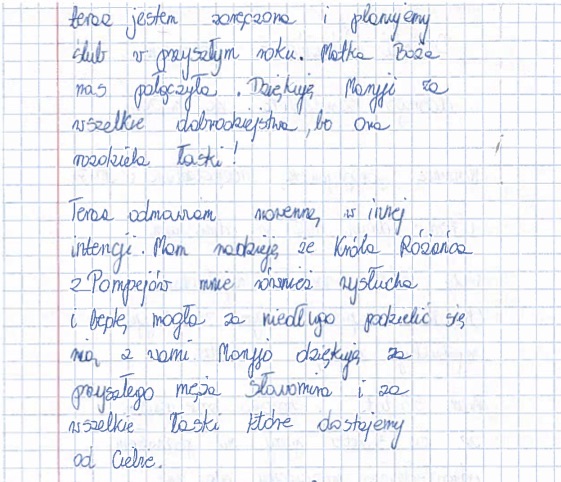 teraz jestem zaręczona i planujemy
ślub w przyszłym roku. Matka Boża
nas połączyła. Dziękuję Maryji za
wszelkie dobrodziejstwa, bo ona
rozdziela łaski!
Teraz odmawiam nowennę w innej
intencji. Mam nadzieję że Królo Różańca
z Pompejów mnie również wysłucha
i będę mogła za niedługo podzielić się
nią z wami. Maryjo dziękuję za
przyszłego męża Sławomira i za
wszelkie łaski które dostajemy
od Ciebie.